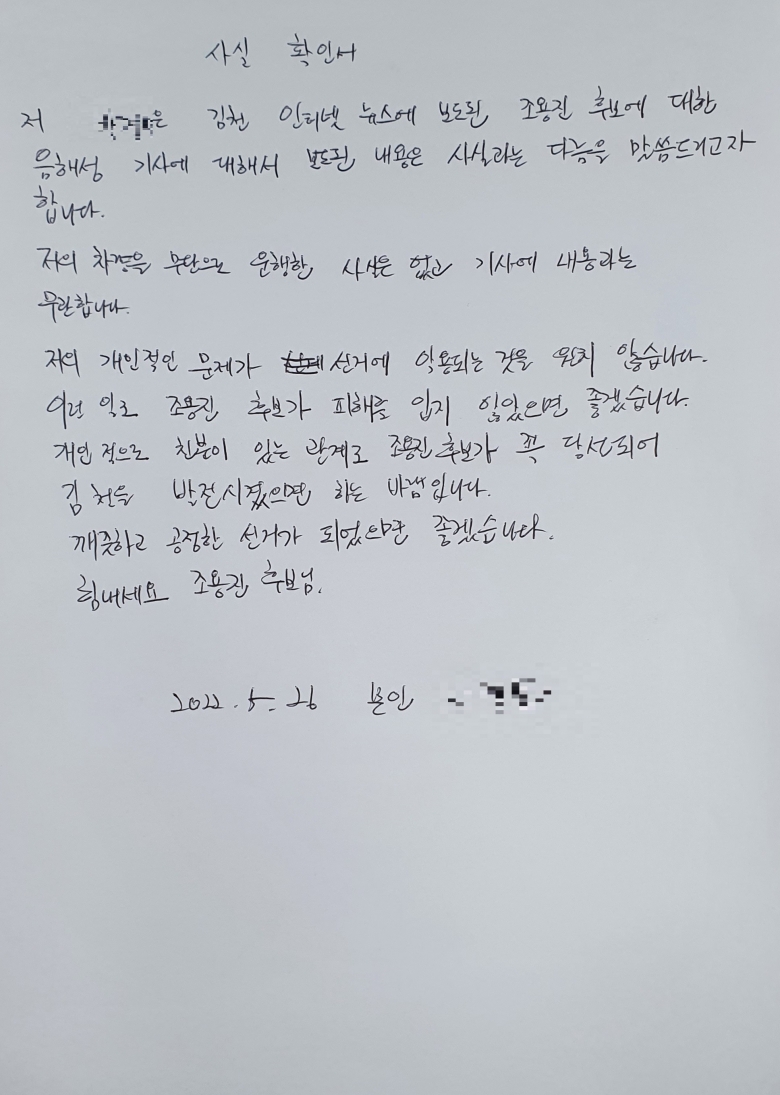 사실 확인서
저 은 김천 인터넷 뉴스에 보도된 조용진 후보에 대한
음해성 기사에 대해서 보도된 내용은 사실과는 다름을 말씀드리고자
합니다.
저의 차량을 무단으로 운행한 사실은 없고 기사에 내용과는
무관합니다.
저의 개인적인 문제가 선거에 악용되는 것을 원치 않습니다.
이런 일로 조용진 후보가 피해를 입지 않았으면 좋겠습니다.
개인적으로 친분이 있는 관계로 조용진 후보가 꼭 당선되어
김천을 발전시켰으면 하는 바램입니다.
깨끗하고 공정한 선거가 되었으면 좋겠습니다.
힘내세요 조용진 후보님.
2022. 5. 26 본인